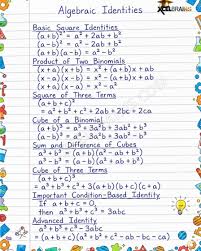 XTRABRAINS
Algebraic Identities
Basic Square Identities
(a+b)² = a² + 2ab + b²
(a-b)² = a² - 2ab + b²
(a+b)(a-b) = a² - b²
Product of Two Binomials
(x+a)(x+b) = x² + (a+b)x + ab
(x-a)(x-b) = x² - (a+b)x + ab
Square of Three Terms
(a+b+c)²
= a² + b² + c² + 2ab + 2bc + 2ca
Cube of a Binomial
(a+b)³ = a³ + 3a²b + 3ab² + b³
(a-b)³ = a³ - 3a²b + 3ab² - b³
Sum and Difference of Cubes
a³ + b³ = (a+b)(a² - ab + b²)
a³ - b³ = (a-b)(a² + ab + b²)
Cube of Three Terms
(a+b+c)³
= a³ + b³ + c³ + 3(a+b)(b+c)(c+a)
Important Condition-Based Identity
If a+b+c = 0,
then a³ + b³ + c³ = 3abc
Advanced Identity
a³ + b³ + c³ - 3abc
= (a+b+c)(a² + b² + c² - ab - bc - ca)